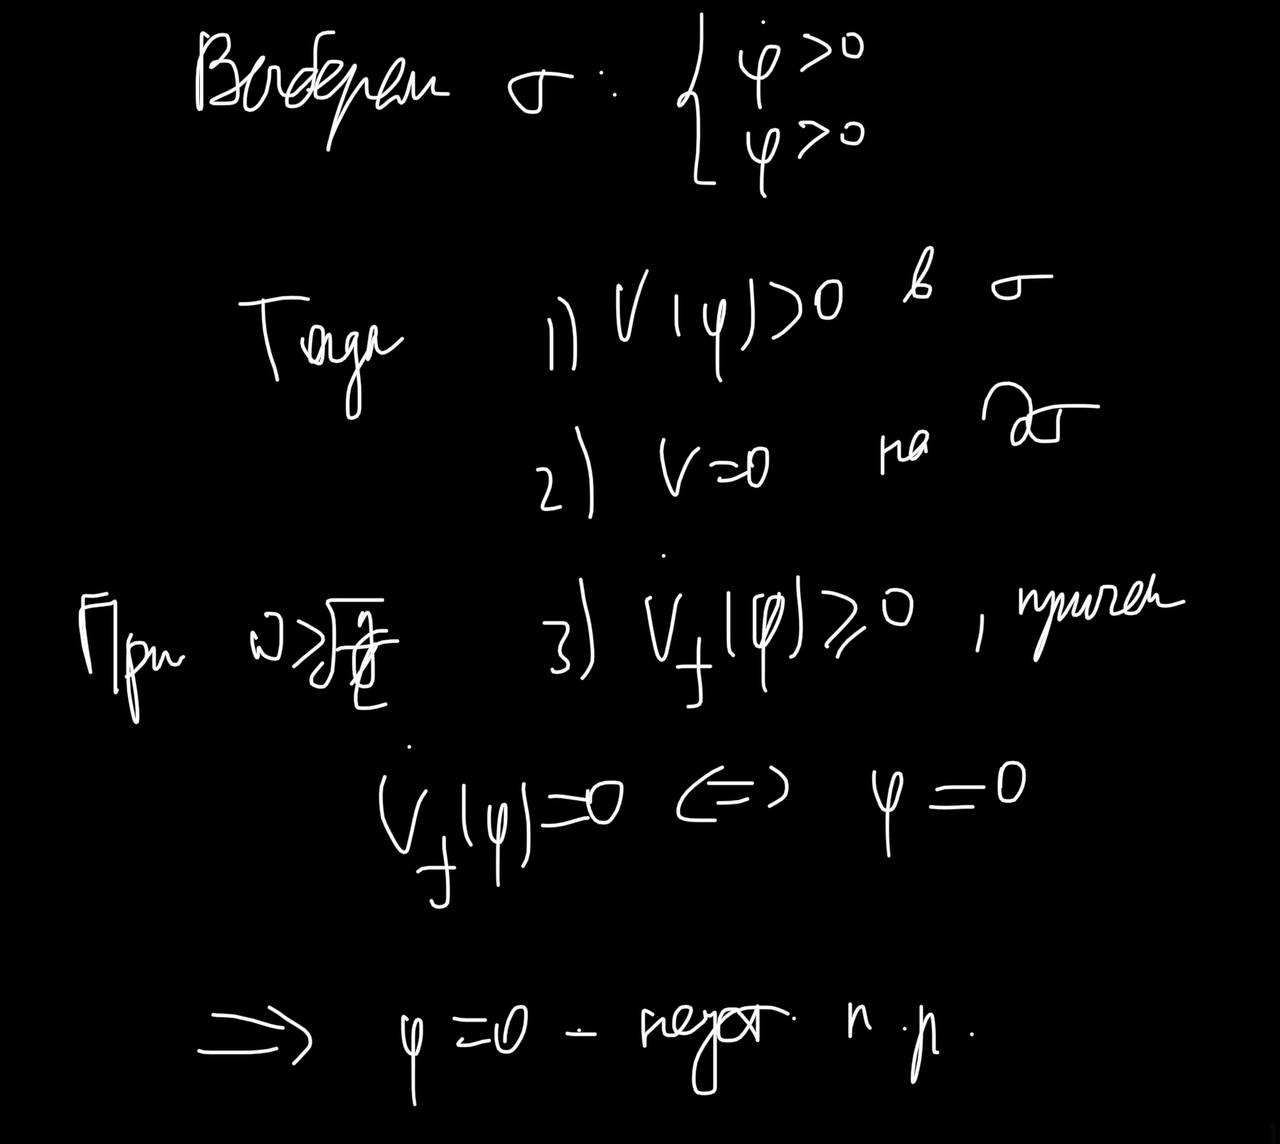 Выберем σ: { φ̇ > 0
φ > 0
Тогда 1) V(φ) > 0 в σ
2) V = 0 на ∂σ
При ω ≥ √(g/ℓ) 3) V̇_f(φ) ≥ 0, причем
V̇_f(φ) = 0 <=> φ = 0
=> φ = 0 – неуст. п.р.